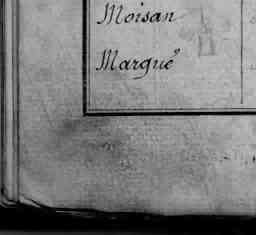 Moisan
Margué